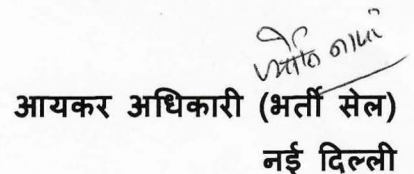 आयकर अधिकारी (भर्ती सेल)
नई दिल्ली